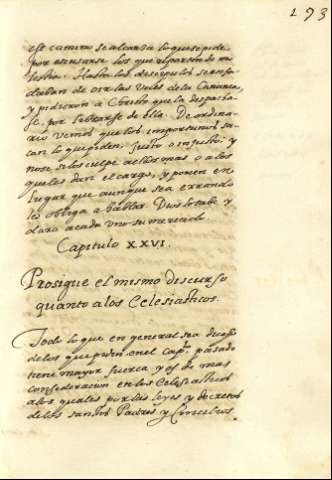 193
este camino se alcanza lo que se pide
por escusarse los que reparten de mo
lestia. Hasta los discipulos se enfa
daban de oir las voles de la Cananea,
y pidieron a Christo que la despacha
se, por librarse de ella. De ordina
rio vemos que los importunos sa
can lo que piden, justo o injusto, y
no se les culpe a ellos mas o a los
que les dan el cargo, y ponen en
lugar que aunque sea errando
les obliga a hablar. Dios lo sabe y
dara a cada uno su merecido.
Capitulo XXVI.
Prosigue el mismo discurso
quanto a los Eclesiasticos.
Todo lo que en general sea dicho
de los que piden en el cap.º pasado
tiene mayor fuerca y es de mas
consideracion en los Eclesiasticos
a los quales por las leyes y decretos
de los santos Padres y Concilios